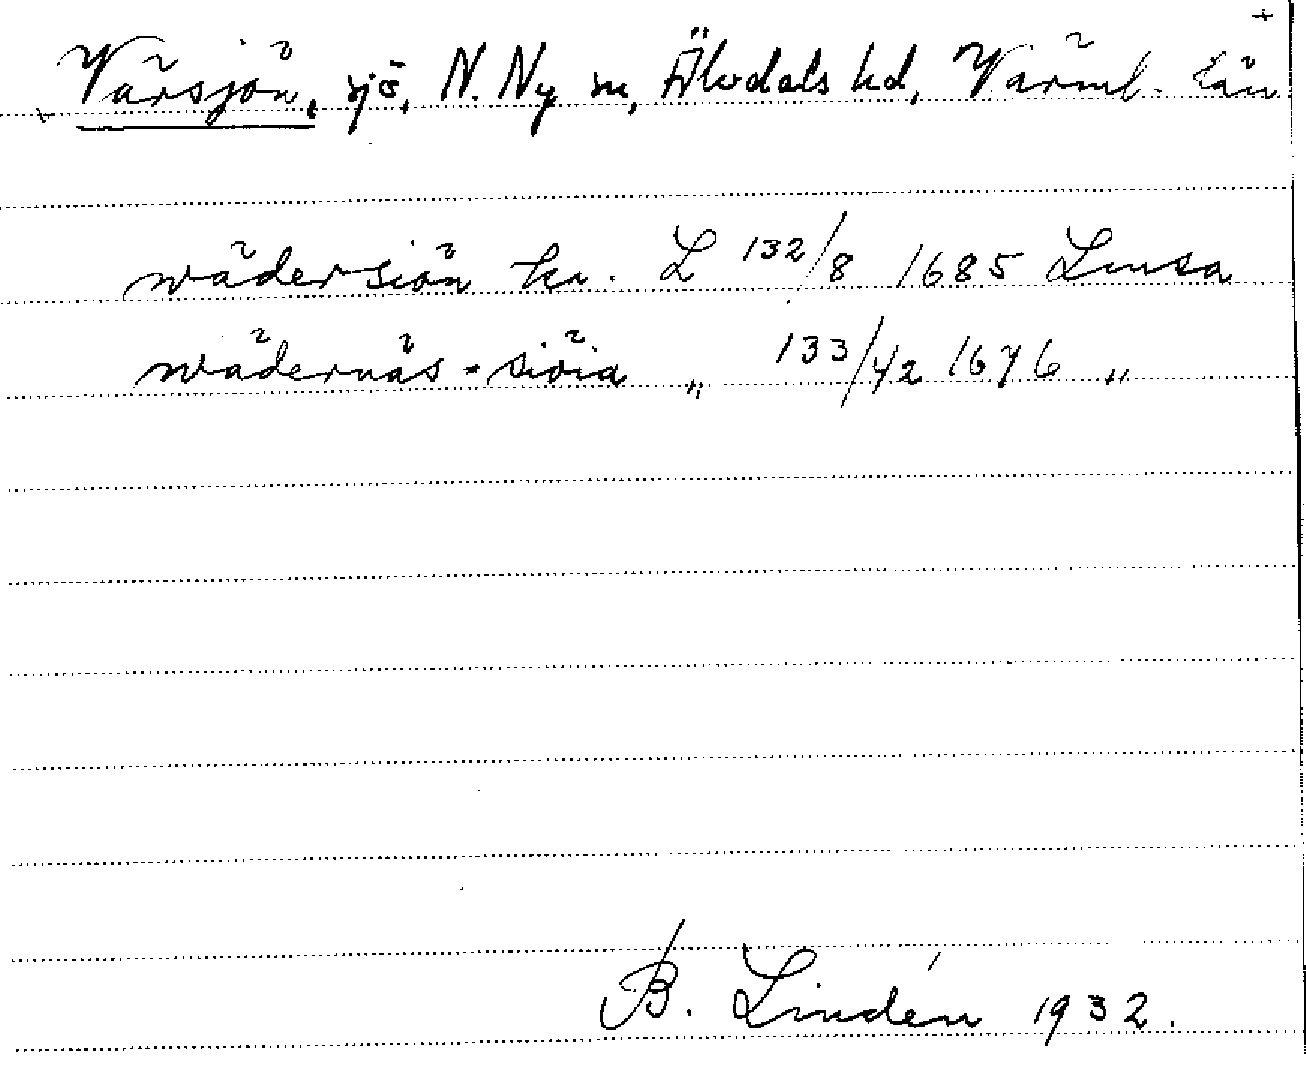 +
Värsjön, sjö, N. Ny sn, Älvdals hd, Värml. län
wädersiön ka. L 132/8 1685 Lmsa
wädernäs-siöia „ 133/42 1676 „
B. Lindén 1932.